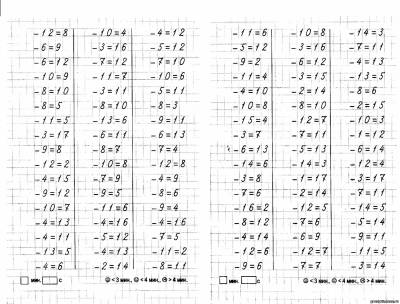 -12=8 -10=4 -4=12
-6=9 -3=16 -5=12
-6=12 -7=12 -7=10
-10=9 -11=7 -10=6
-8=10 -3=11 -5=11
-8=5 -8=10 -8=3
-11=5 -13=6 -9=11
-3=17 -6=11 -6=13
-9=8 -8=7 -7=4
-12=2 -10=8 -12=8
-4=15 -7=9 -4=9
-9=12 -9=5 -8=6
-10=7 -11=6 -9=4
-4=13 -4=16 -4=16
-4=11 -5=12 -7=5
-13=5 -4=13 -11=2
-4=6 -2=14 -8=11
МИН. С <3 МИН. <4 МИН. >4 МИН.
-11=6 -10=3 -14=3
-5=12 -3=16 -7=11
-9=2 -6=12 -4=13
-11=4 -3=15 -13=5
-4=10 -2=14 -8=6
-10=8 -8=10 -2=15
-15=4 -12=7 -10=3
-3=7 -7=11 -1=12
-6=13 -5=13 -6=14
-14=6 -14=3 -12=4
-3=8 -1=17 -3=17
-7=6 -2=14 -7=11
-16=2 -12=5 -14=5
-8=12 -7=6 -5=14
-4=14 -6=9 -9=11
-12=6 -12=7 -7=5
-9=6 -7=7 -3=14
МИН. С <3 МИН. <4 МИН. >4 МИН.